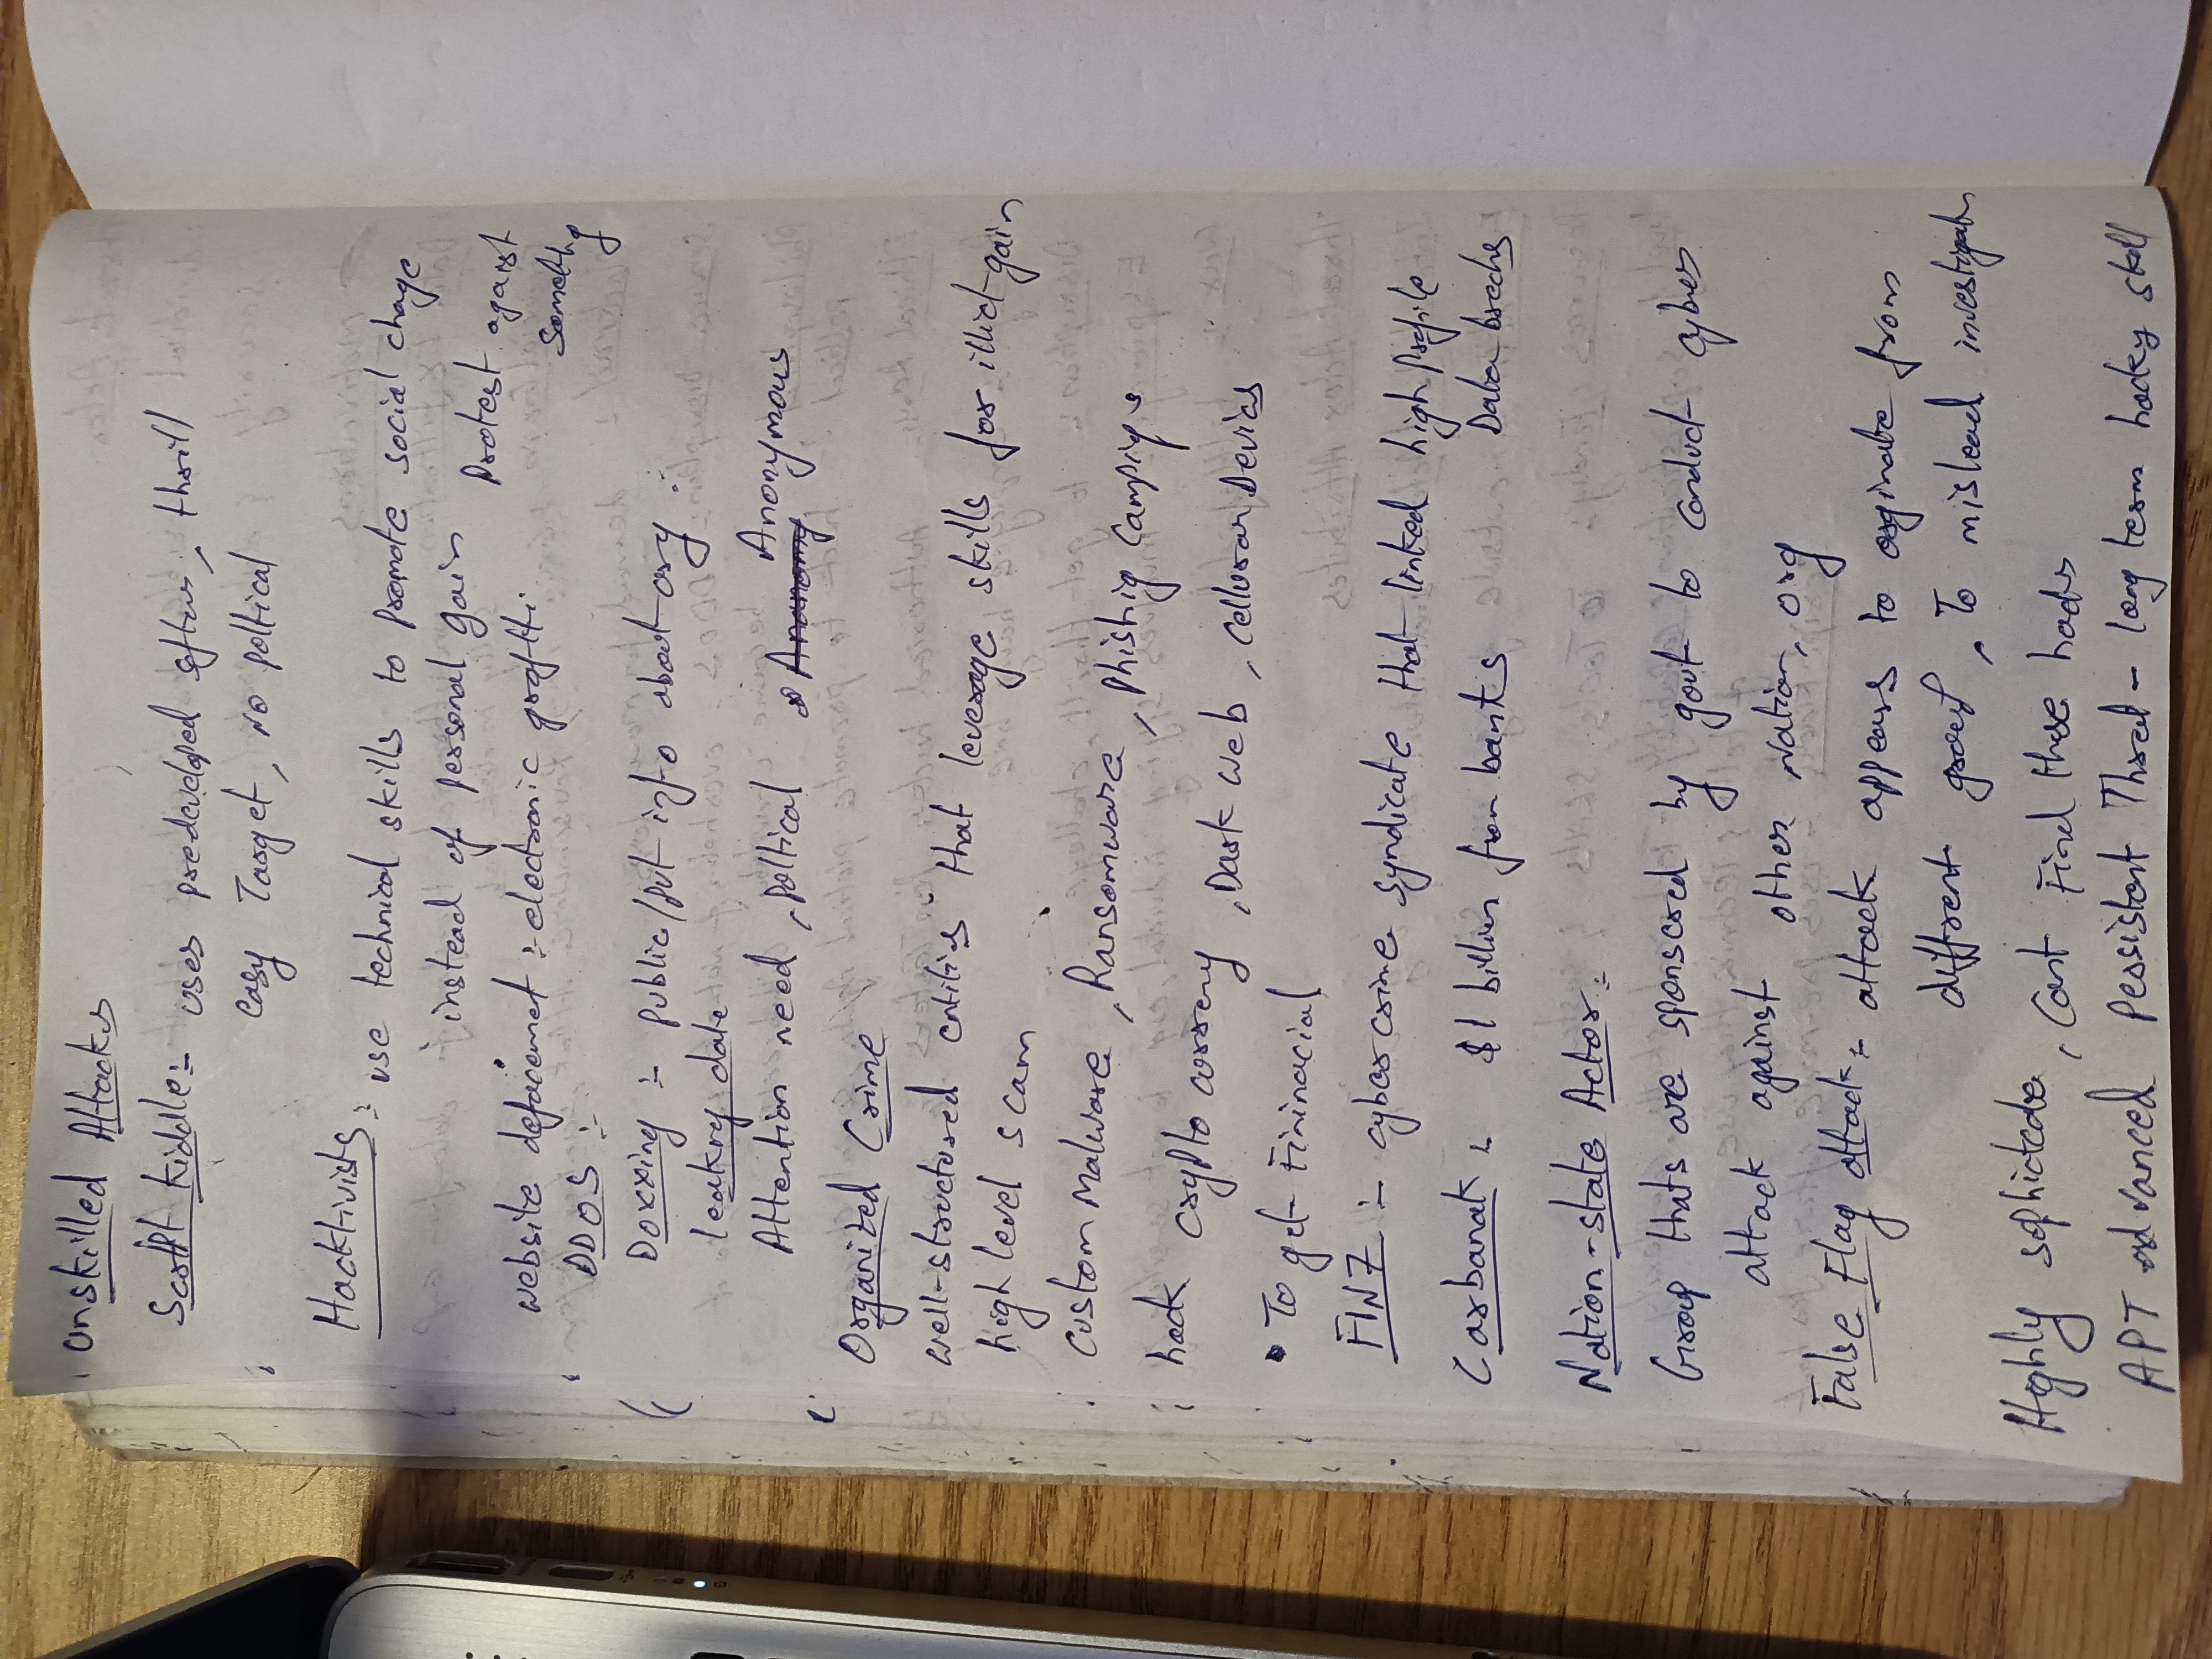 Unskilled Attacks
Script Kiddle:- uses predeveloped softws, thrill
easy Target, No poltical
Hacktivists:- use technical skills to promote social chage
instead of personal gain Protest against
website defacemet :- electronic graftti Somethg
DDOS :-
Doxxing :- public/put info about org
leakng data
Attention need, poltical Anonymous
Organized Crime
well-structured entities that leverage skills for illict gain
high level scam
custom Malware, Ransomware, Phishig Campigs
hack crypto currency, Dark web, Cellurar Devics
• To get Fininacial
FIN7 :- cybercrime syndicate that linked high profile
Carbanak :- $1 billion from banks Data brechs
Nation-state Actor:-
Group thats are sponsered by govt to conduct cyber
attack against other Nation, org
False Flag attack:- attack appears to orginate from
diffrent group, To mislead investigatn
Highly sophictede, Cant Find these hacks
APT advanced Persistent Thret - long term hackig skill